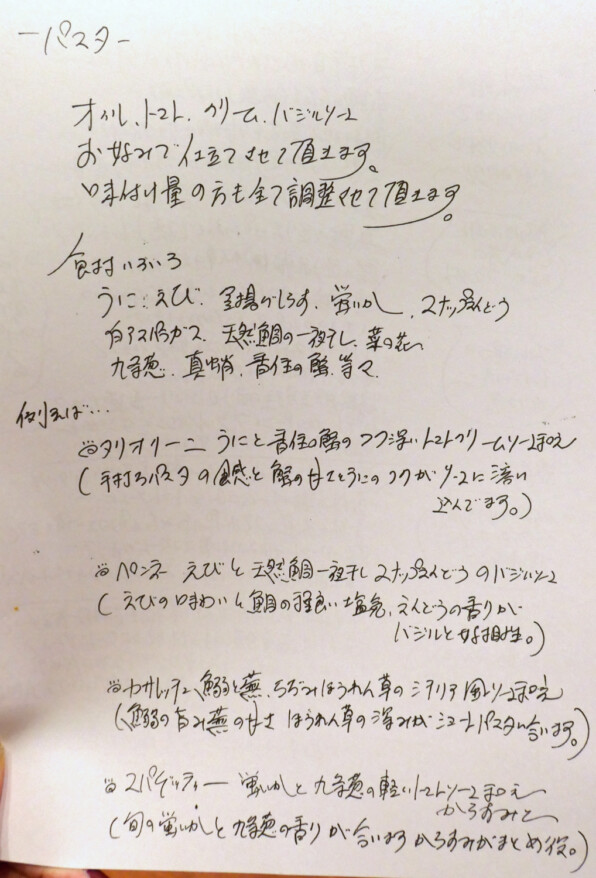 ーパスター
オイル、トマト、クリーム、バジルソース
お好みで仕立てさせて頂きます。
味付け量の方も全て調整させて頂きます。
食材いろいろ
うに、えび、釜揚げしらす、蛍いか、スナップえんどう
白アスパラガス、天然鯛の一夜干し、菜の花
九条葱、真蛸、香住の蟹、等々
例えば…
タリオリーニ うにと香住蟹のコク深いトマトクリームソース和え
(手打ちパスタの食感と蟹の甘さとうにのコクがソースに溶い
込んでます。)
ペンネ えびと天然鯛一夜干しスナップえんどうのバジルソース
(えびの味わいと鯛の程良い塩気、えんどうの香りが
バジルと好相性。)
カサレッチェ 鰯と蕪、ちぢみほうれん草のシチリア風ソース和え
(鰯の旨み蕪の甘さ ほうれん草の深みがショートパスタに合います。)
スパゲッティー 蛍いかと九条葱の軽いトマトソース和え
からすみと
(旬の蛍いかと九条葱の香りが合います からすみがまとめ役。)